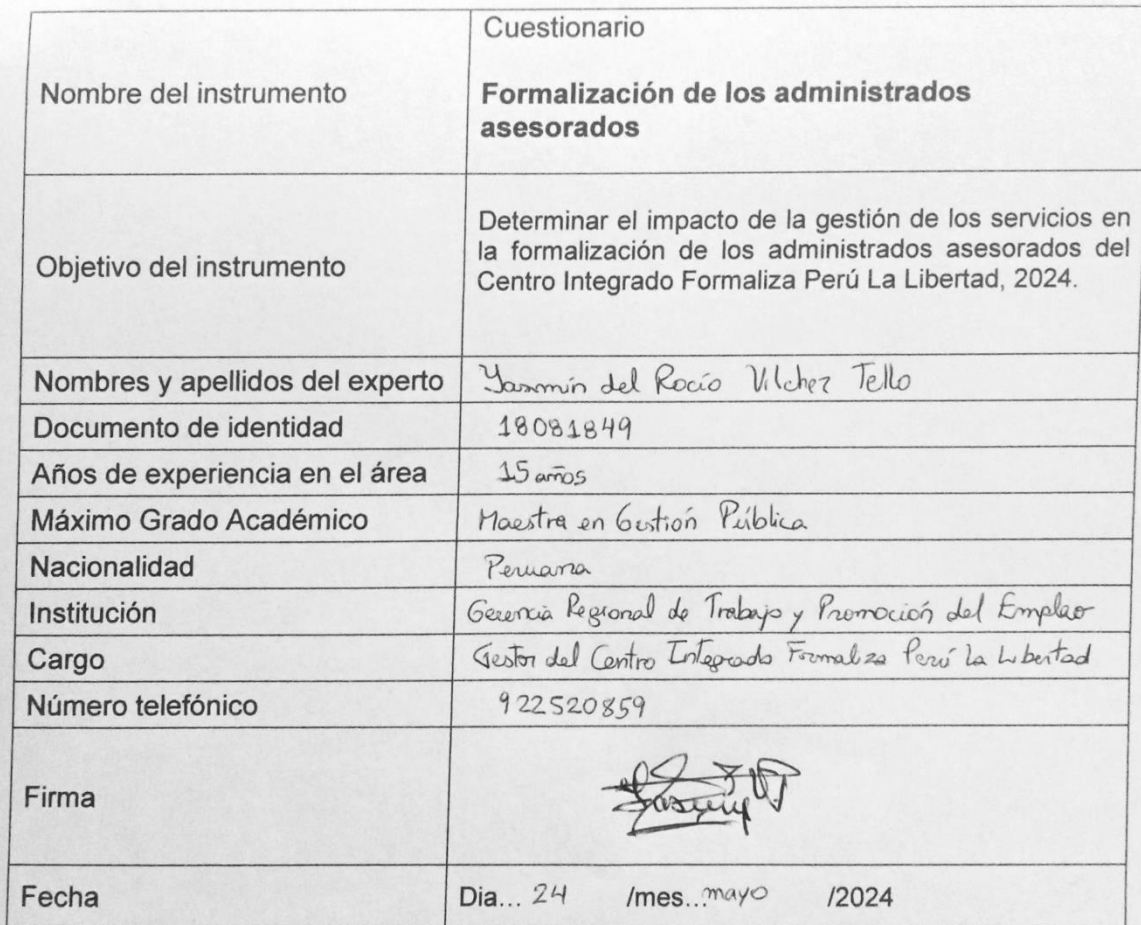 Nombre del instrumento
Cuestionario
Formalización de los administrados
asesorados
Objetivo del instrumento
Determinar el impacto de la gestión de los servicios en
la formalización de los administrados asesorados del
Centro Integrado Formaliza Perú La Libertad, 2024.
Nombres y apellidos del experto Yasmin del Rocío Vilchez Tello
Documento de identidad 18081849
Años de experiencia en el área 15 años
Máximo Grado Académico Maestra en Gestión Pública
Nacionalidad Peruana
Institución Gerencia Regional de Trabajo y Promoción del Empleo
Cargo Gestor del Centro Integrado Formaliza Perú La Libertad
Número telefónico 922520859
Firma
Fecha Dia... 24 /mes...mayo /2024